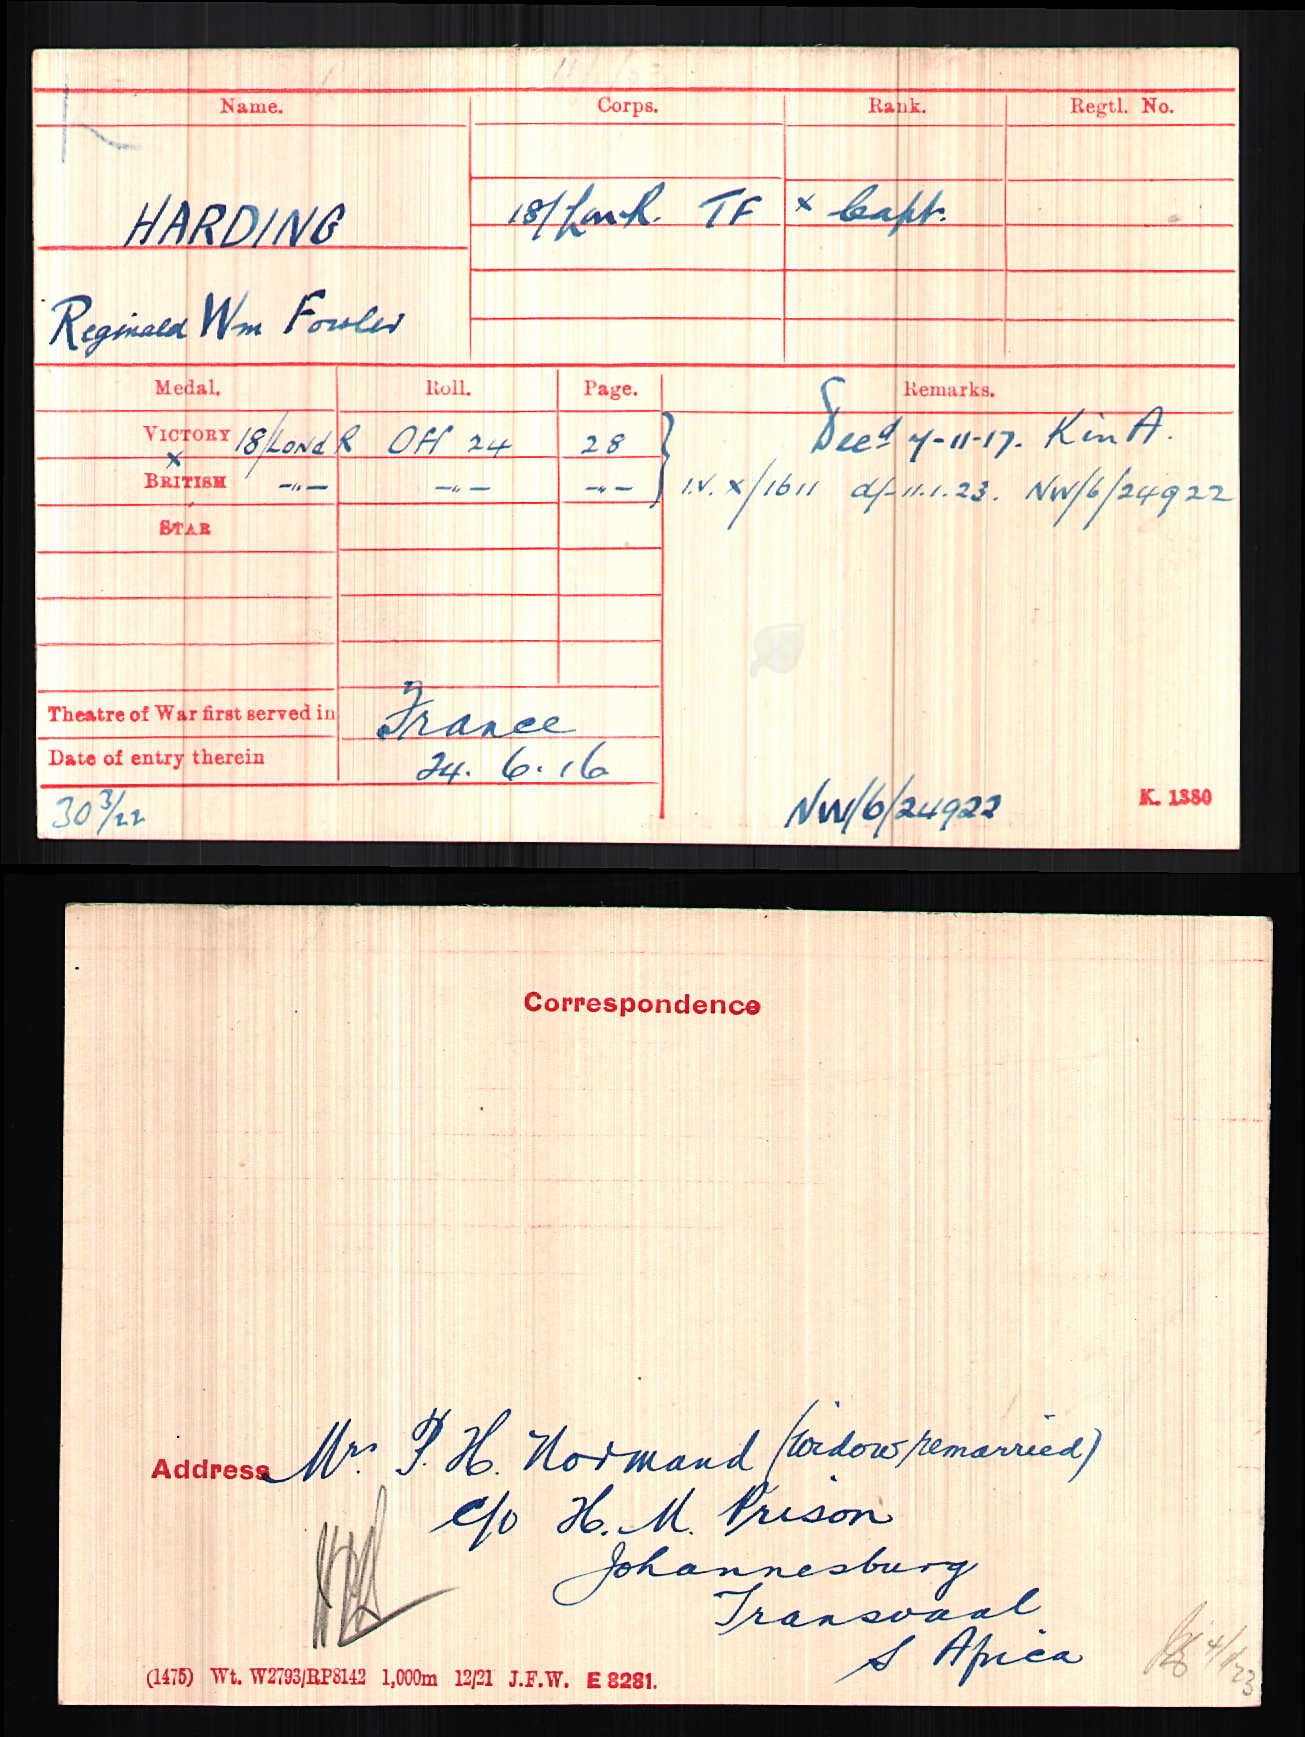 Name. Corps. Rank. Regtl. No.
HARDING 18/Lon.R. TF x Capt.
Reginald Wm Fowler
Medal. Roll. Page. Remarks.
VICTORY 18/Lond R Off 24 28 } Decd 7-11-17. K in A.
x
BRITISH -"- -"- -"- I.V. X/1611 d/- 11.1.23. NW/6/24922
STAR
Theatre of War first served in France
Date of entry therein 24. 6. 16
30 3/22 NW/6/24922 K. 1380
Correspondence
Address Mrs. P. H. Normand (Widow remarried)
c/o H. M. Prison
Johannesburg
Transvaal
S Africa
(1475) Wt. W2793/RP8142 1,000m 12/21 J.F.W. E 8281.
4/1/23